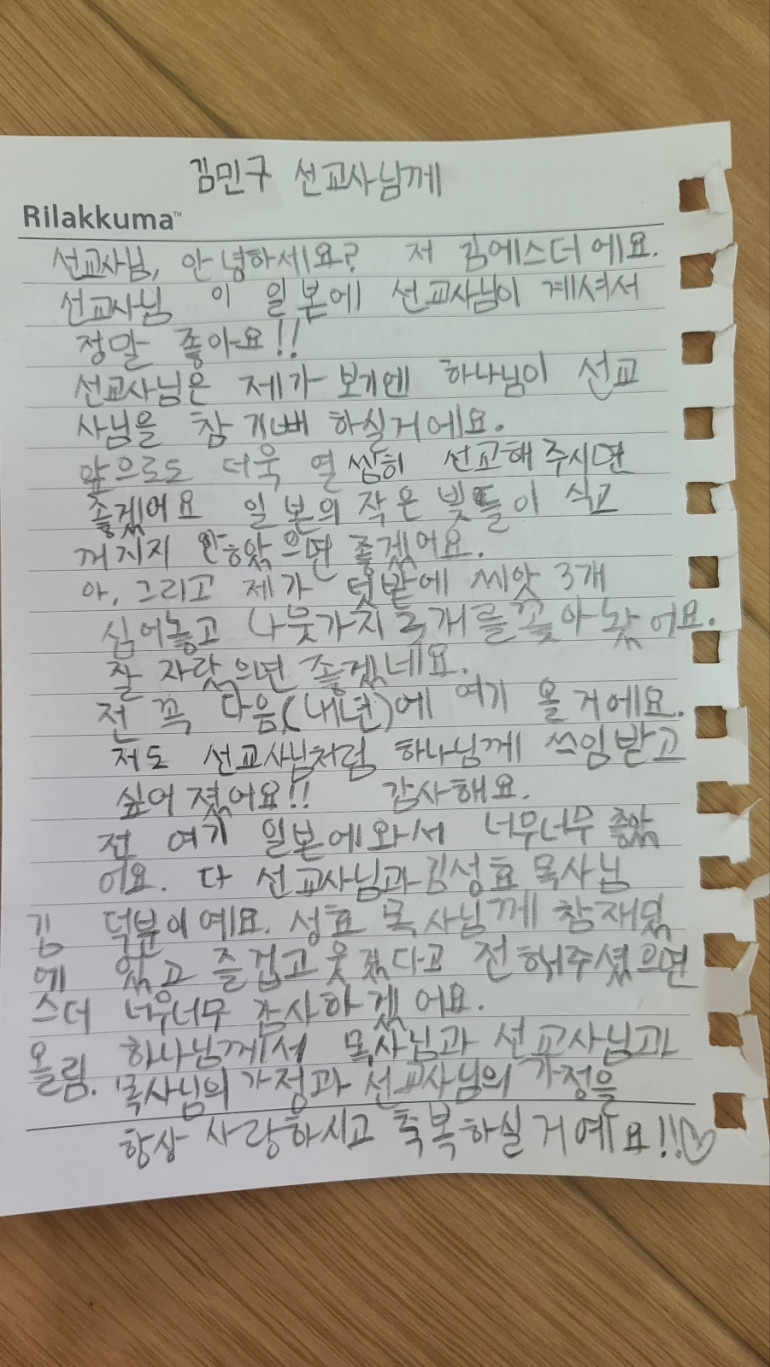 김민구 선교사님께
Rilakkuma™
선교사님, 안녕하세요? 저 김에스더에요.
선교사님 이 일본에 선교사님이 계셔서
정말 좋아요!!
선교사님은 제가 보기엔 하나님이 선교
사님을 참 기뻐 하실거에요.
앞으로도 더욱 열씸히 선교해주시면
좋겠어요 일본의 작은 빛들이 식고
꺼지지 안핞았으면 좋겠어요.
아, 그리고 제가 텃밭에 씨앗 3개
심어놓고 나뭇가지 3개를 꽂아놨어요.
잘 자랐으면 좋겠네요.
전 꼭 다음(내년)에 여기 올거에요.
저도 선교사님처럼 하나님께 쓰임받고
싶어졌어요!! 감사해요.
전 여기 일본에와서 너무너무 좋았
어요. 다 선교사님과김성효 목사님
덕분이예요. 성효 목사님께 참재밌
었고 즐겁고 웃겼다고 전해주셨으면
너무너무 감사하겠어요.
하나님께서 목사님과 선교사님과
목사님의 가정과 선교사님의 가정을
항상 사랑하시고 축복하실 거예요!!♡
김
에
스더
올림.